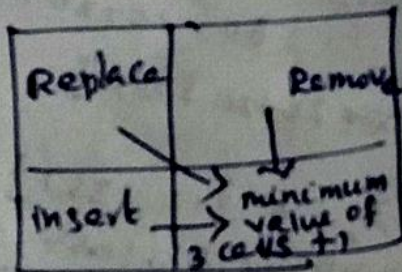 Replace
Remove
insert
minimum
value of
3 cells +1